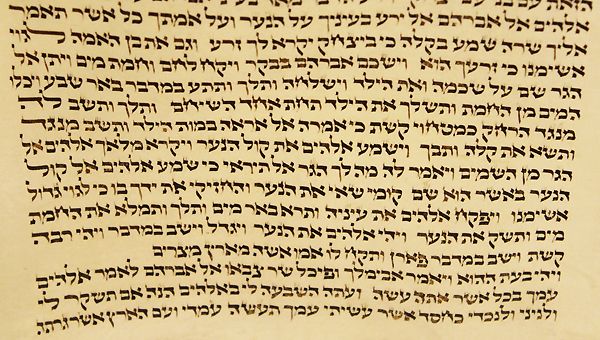 אלהים אל אברהם אל ירע בעיניך על הנער ועל אמתך כל אשר תאמר
אליך שרה שמע בקלה כי ביצחק יקרא לך זרע וגם את בן האמה לגוי
אשימנו כי זרעך הוא וישכם אברהם בבקר ויקח לחם וחמת מים ויתן אל
הגר שם על שכמה ואת הילד וישלחה ותלך ותתע במדבר באר שבע ויכלו
המים מן החמת ותשלך את הילד תחת אחד השיחם ותלך ותשב לה
מנגד הרחק כמטחוי קשת כי אמרה אל אראה במות הילד ותשב מנגד
ותשא את קלה ותבך וישמע אלהים את קול הנער ויקרא מלאך אלהים אל
הגר מן השמים ויאמר לה מה לך הגר אל תיראי כי שמע אלהים אל קול
הנער באשר הוא שם קומי שאי את הנער והחזיקי את ידך בו כי לגוי גדול
אשימנו ויפקח אלהים את עיניה ותרא באר מים ותלך ותמלא את החמת
מים ותשק את הנער ויהי אלהים את הנער ויגדל וישב במדבר ויהי רבה
קשת וישב במדבר פארן ותקח לו אמו אשה מארץ מצרים
ויהי בעת ההוא ויאמר אבימלך ופיכל שר צבאו אל אברהם לאמר אלהים
עמך בכל אשר אתה עשה ועתה השבעה לי באלהים הנה אם תשקר לי
ולניני ולנכדי כחסד אשר עשיתי עמך תעשה עמדי ועם הארץ אשר גרתה